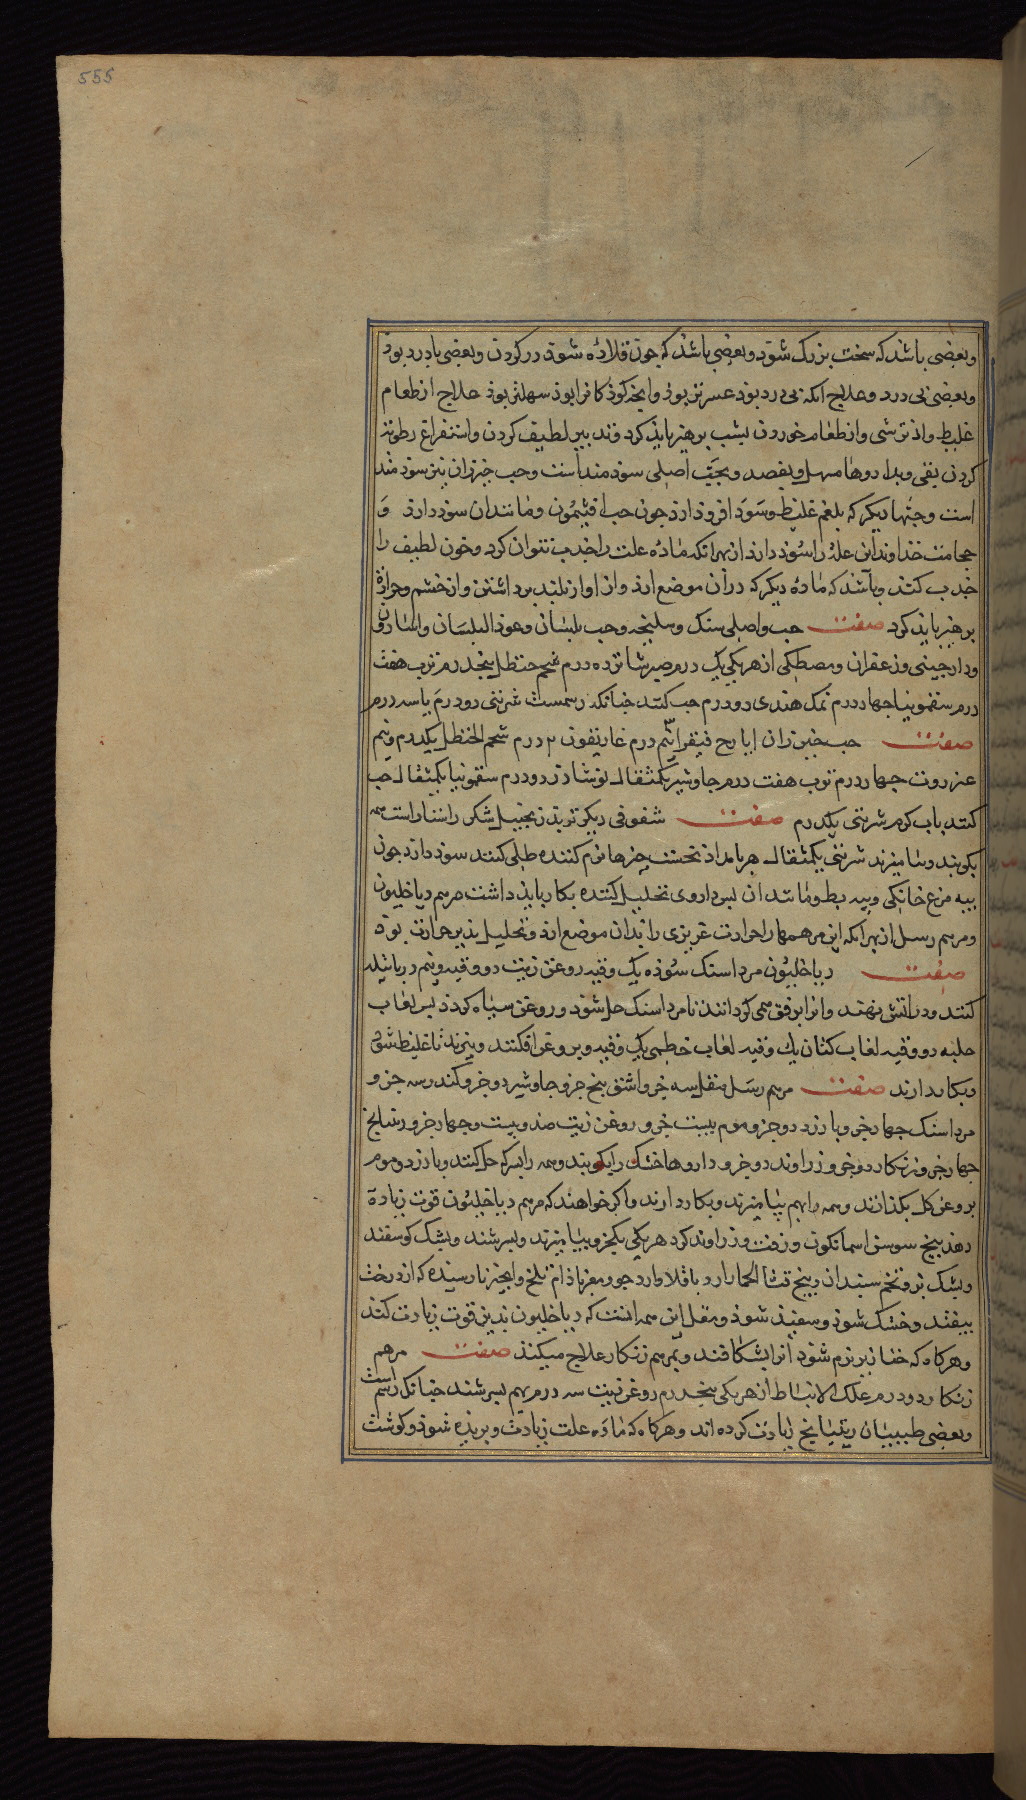 555
وبعضی باشذ که سخت بزرک شوذ وبعضی باشذ که جون قلاده شوذ در کردن وبعضی با درد بوذ
وبعضی بی درد وعلاج انکه بی درد بوذ عسرتر بوذ وانجه کوذکانرا بوذ سهلتر بوذ علاج از طعام
غلیظ واز ترشی واز طعام خوردن بشب برهیز بایذ کرد وتدبیر لطیف کردن واستفراغ رطوبتر
کردن بقی وبدارو‌ها مسهل وبفصد وبحب اصلی سوذمند است وحب خیزران نیز سوذمند
است وحبها دیکر که بلغم غلیظ وسودا فروذ ارذ جون حب افتیمون ومانند ان سوذ دارذ و
حجامت خذاوند این علة را سوذ دارذ از بهر انکه ماده علت را جذب نتوان کرد وخون لطیف را
جذب کند وباشذ که ماده دیکر که در ان موضع ارذ واز اواز بلند برداشتن واز خشم وحرارة
برهیز بایذ کرد صفت حب واصلی سنک وسلیخه وحب بلسان وعوذ البلسان واسارون
ودارجینی وزعفران ومصطکی از هر یکی یک درم صبر شانزده درم شحم حنظل بنجدرم تربد هفت
درم سقمونیا جهار درم نمک هندی دو درم حب کنند جنانکه رسمست شربتی دو درم یا سه درم
صفت حب خیزران ایارج فیقرا نیم درم غاریقون ۲ درم شحم الحنظل یکدرم ونیم
عنزروت جهار درم تربد هفت درم جاوشیر یکمثقال نوشاذر دو درم سقمونیا یکمثقال حب
کنند باب کرم شربتی یکدرم صفت سفوفی دیکر تربد زنجبیل شکر راستاراست همه
بکوبند وبیامیزند شربتی یکمثقال هر بامداذ نخست جیزها نرم کننده طلی کنند سوذ دارذ جون
بیه مرغ خانکی وبیه بط ومانند ان بس داروی تحلیل کننده بکار بایذ داشت مرهم دیاخلیون
ومرهم رسل از بهر انکه این مرهمها را حرارت غریزی را بذان موضع ارذ وتحلیل بذیر حرارت بوذ
صفت دیاخلیون مرداسنک سوذه یک وقیه روغن زیت دو وقیه ونیم در باتیله
کنند ودر اتش نهند وانرا برفق همی کردانند تا مرداسنک حل شوذ وروغن سیاه کردذ بس لعاب
حلبه دو وقیه لعاب کتان یک وقیه لعاب خطمی یک وقیه وبروغن افکنند وبپزند تا غلیظ شوذ
وبکار دارند صفت مرهم رسل مقل سه جزو اشق بنج جزو جاوشیر دو جزو کندر سه جزو
مرداسنک جهار جزو بارزد دو جزو موم بیست جزو روغن زیت صد وبیست وجهار جزو رتیانج
جهار جزو زنکار دو جزو زراوند دو جزو داروها خشک را بکوبند وهمه را بسرکه حل کنند وبارزد وموم
بروغن کل بکذازند وهمه را بهم بیامیزند وبکار دارند واکر خواهند که مرهم دیاخلیون قوت زیادة
دهذ بیخ سوسن اسمانکون وزفت وزراوند کرد هر یکی یکجزو بیامیزند وبسرشند وبشک کوسفند
وبشک بز وتخم سبندان وبیخ قثا الحمار ارد باقلا وارد جو ومغز باذام تلخ وانجیر نارسیده که از درخت
بیفتد وخشک شوذ وسفید شوذ ومقل این همه انست که دیاخلیون بذین قوت زیادت کنذ
وهرکاه که خنازیر نرم شوذ انرا بشکافند وبمرهم زنکار علاج میکنذ صفت مرهم
زنکار دو درم علک الانباط از هر یکی بنجدرم روغن زیت سه درم بهم بسرشند جنانکه رسم است
وبعضی طبیبان رتیانج زیادت کرده اند وهرکاه که ماده علت زیادت وبریذه شوذ وکوشت